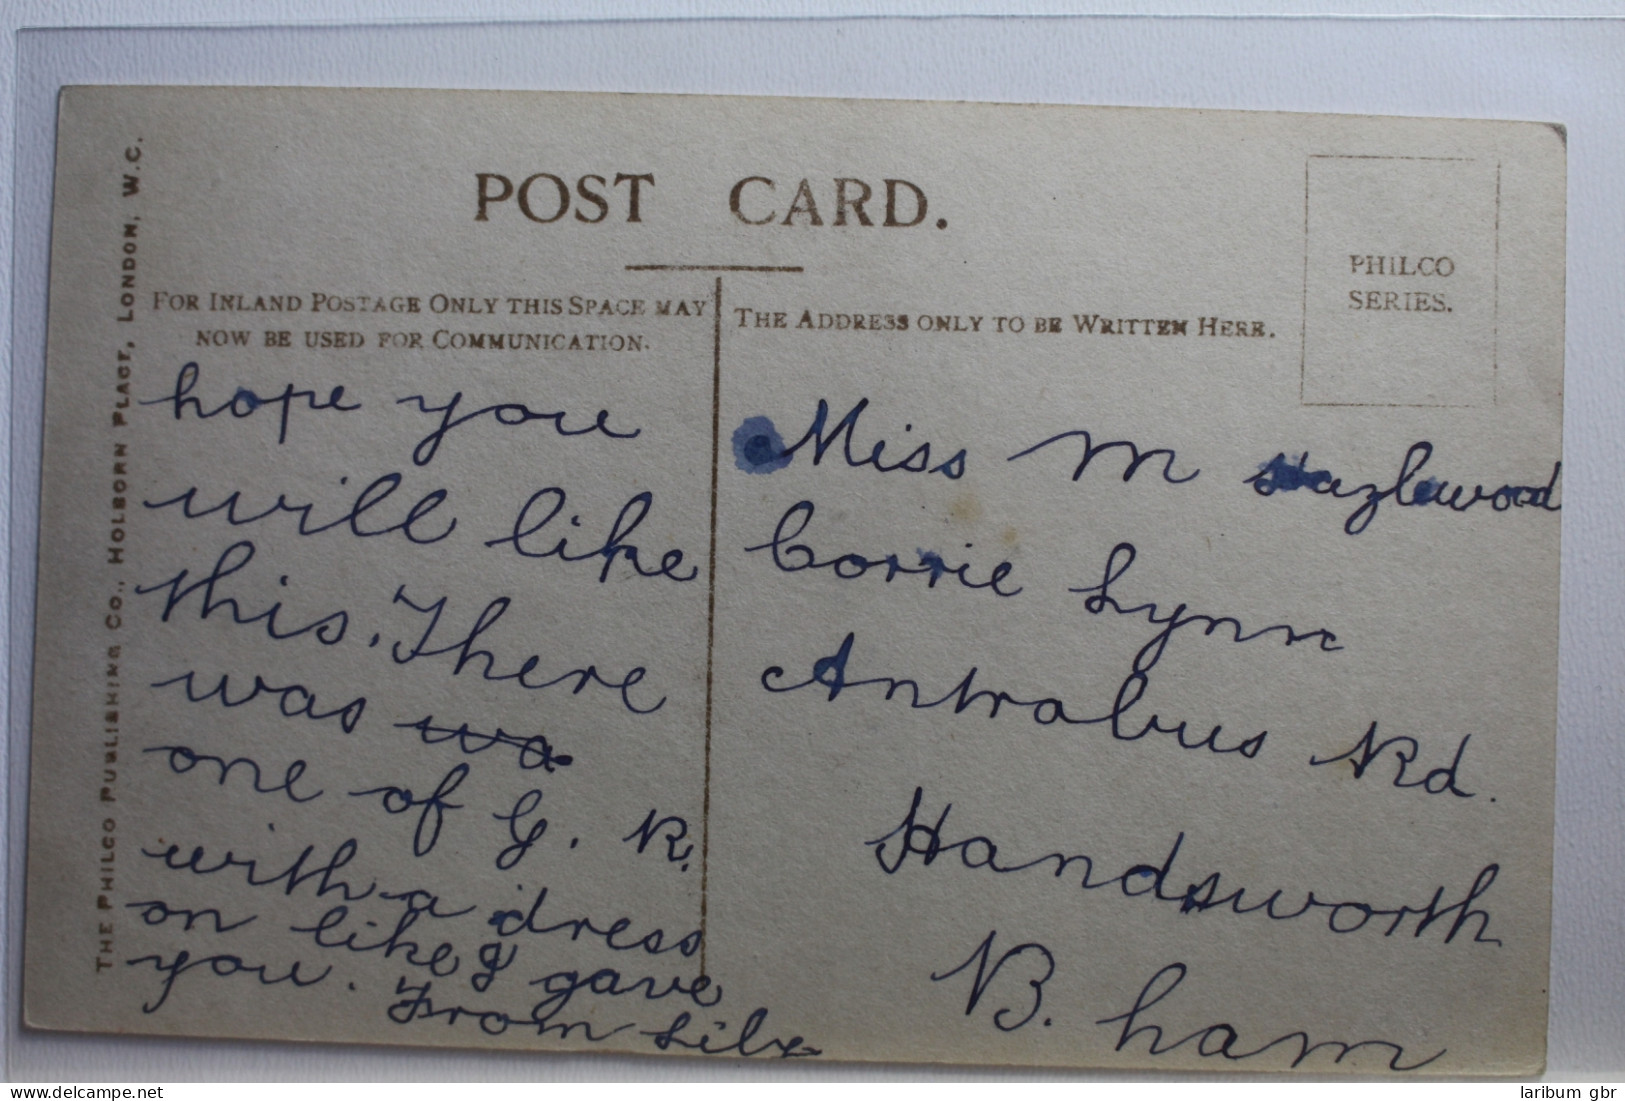 POST CARD.
FOR INLAND POSTAGE ONLY THIS SPACE MAY
NOW BE USED FOR COMMUNICATION.
THE ADDRESS ONLY TO BE WRITTEN HERE.
PHILCO
SERIES.
THE PHILCO PUBLISHING CO., HOLBORN PLACE, LONDON, W.C.
hope you
will like
this. There
was wa
one of G. R.
with a dress
on like I gave
you.
From Lily
Miss M Hazlewood
Corrie Lynn
Antrobus Rd.
Handsworth
B. ham
www.delcampe.net
laribum gbr